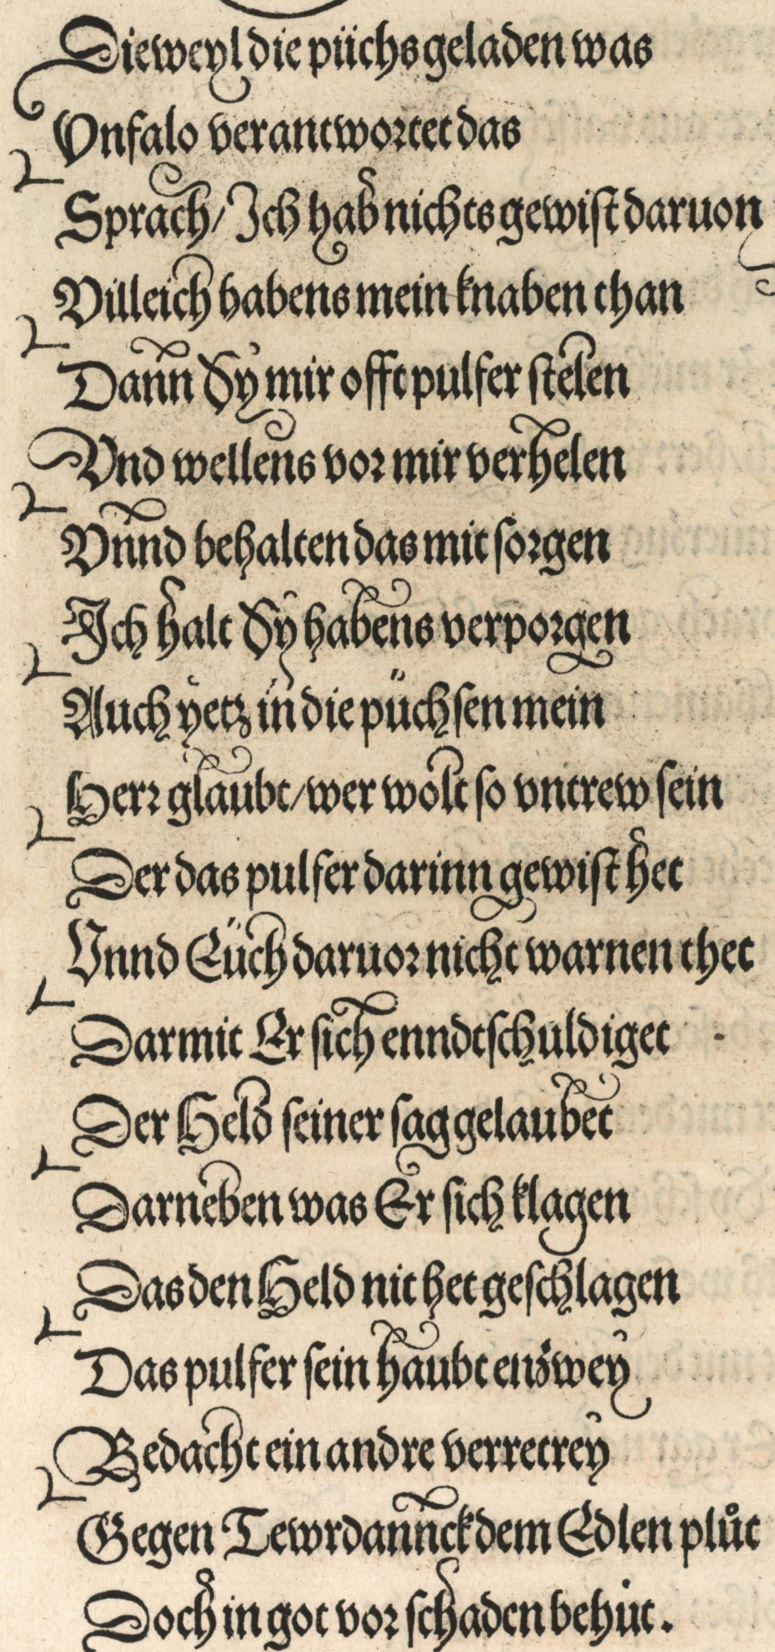 Dieweyl die püchs geladen was
Vnfalo verantwortet das
Sprach/ Ich hab nichts gewist daruon
Villeich habens mein knaben than
Dann Sy mir offt pulfer stelen
Vnd wellens vor mir verhelen
Vnnd behalten das mit sorgen
Ich halt Sy habens verporgen
Auch yetz in die püchsen mein
Herr glaubt/ wer wolt so vntrew sein
Der das pulfer darinn gewist het
Vnnd Eüch daruor nicht warnen thet
Darmit Er sich enndtschuldiget
Der Held seiner sag gelaubet
Darneben was Er sich klagen
Das den Held nit het geschlagen
Das pulfer sein haubt enzwey
Bedacht ein andre verretrey
Gegen Tewrdannck dem Edlen plůt
Doch in got vor schaden behüt.